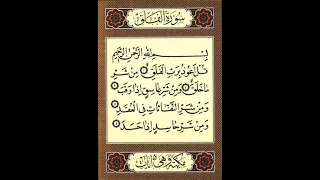 سُورَةُ الْفَلَقِ
بِسْمِ اللَّهِ الرَّحْمَٰنِ الرَّحِيمِ
قُلْ أَعُوذُ بِرَبِّ الْفَلَقِ ۝ مِن شَرِّ
مَا خَلَقَ ۝ وَمِن شَرِّ غَاسِقٍ إِذَا وَقَبَ ۝
وَمِن شَرِّ النَّفَّاثَاتِ فِي الْعُقَدِ ۝
وَمِن شَرِّ حَاسِدٍ إِذَا حَسَدَ ۝
مكية وهي آيات